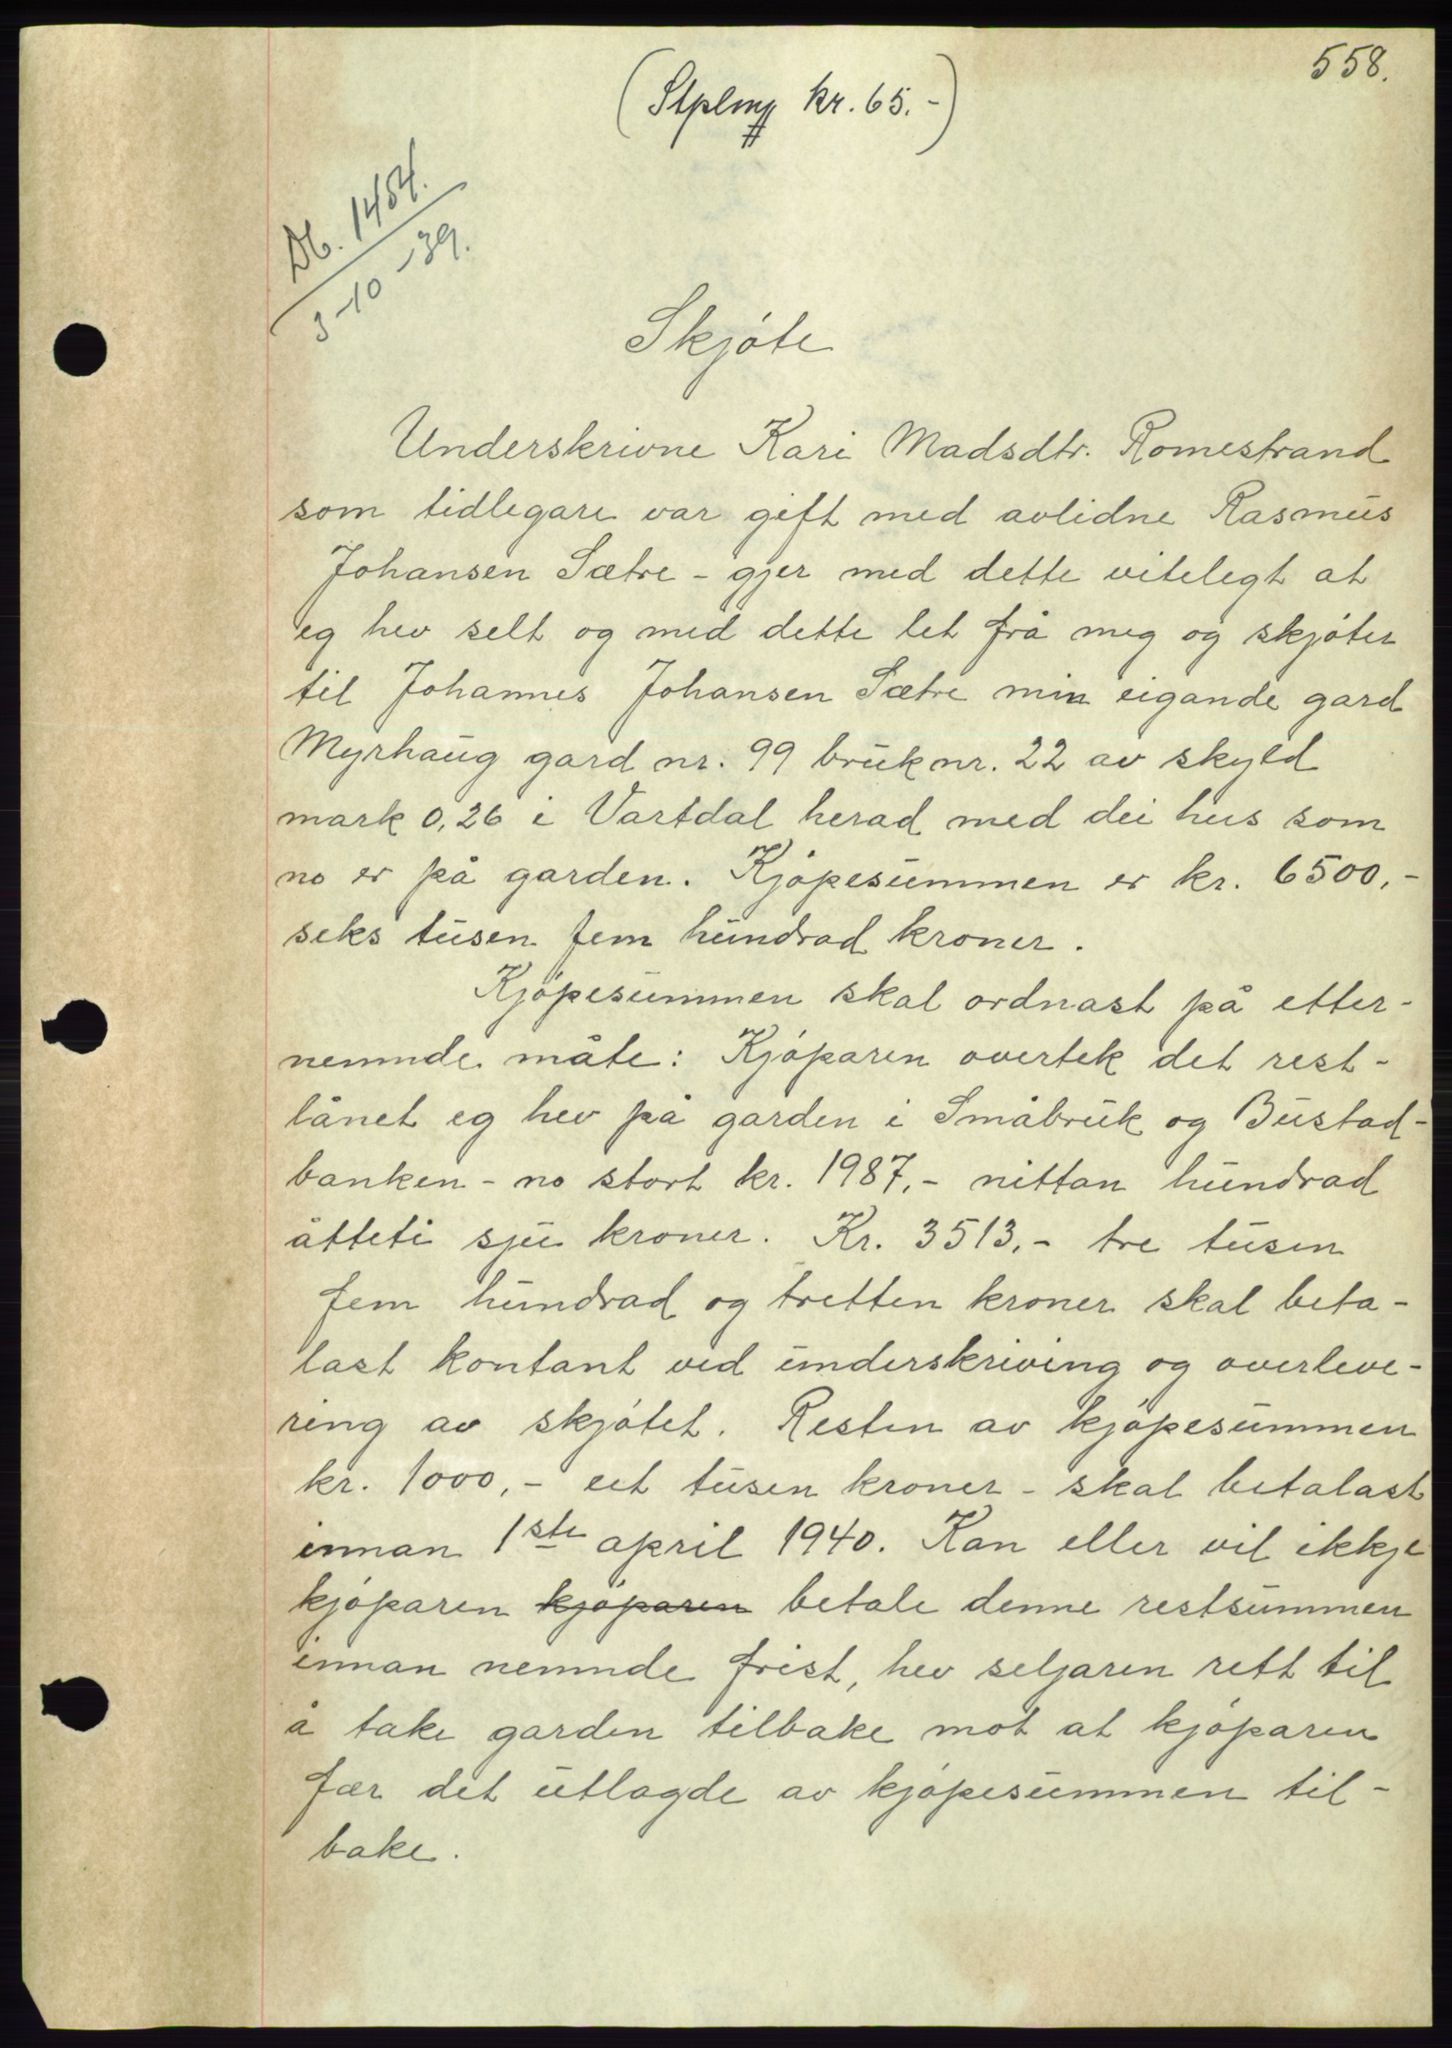 558.
(Stplmg kr. 65.-)
Db. 1454.
3-10-39.
Skjóte
Underskrivne Kari Madsdtr. Romestrand
som tidlegare var gift med avlidne Rasmus
Johansen Sætre - gjer med dette vitelegt at
eg hev selt og med dette let frå meg og skjóter
til Johannes Johansen Sætre min eigande gard
Myrhaug gard nr. 99 bruk nr. 22 av skyld
mark 0,26 i Vartdal herad med dei hus som
no er på garden. Kjópesummen er kr. 6500,-
seks tusen fem hundrad kroner.
Kjópesummen skal ordnast på etter-
nemnde måte: Kjóparen overtek det rest-
lånet eg hev på garden i Småbruk og Bustad-
banken - no stort kr. 1987,- nittan hundrad
åtteti sju kroner. Kr. 3513,- tre tusen
fem hundrad og tretten kroner skal beta-
last kontant ved underskriving og overleve-
ring av skjótet. Resten av kjópesummen
kr. 1000,- eet tusen kroner - skal betalast
innan 1ste april 1940. Kan eller vil ikkje
kjóparen kjóparen betale denne restsummen
innan nemnde frist, hev seljaren rett til
å take garden tilbake mot at kjóparen
fær det utlagde av kjópesummen til-
bake.